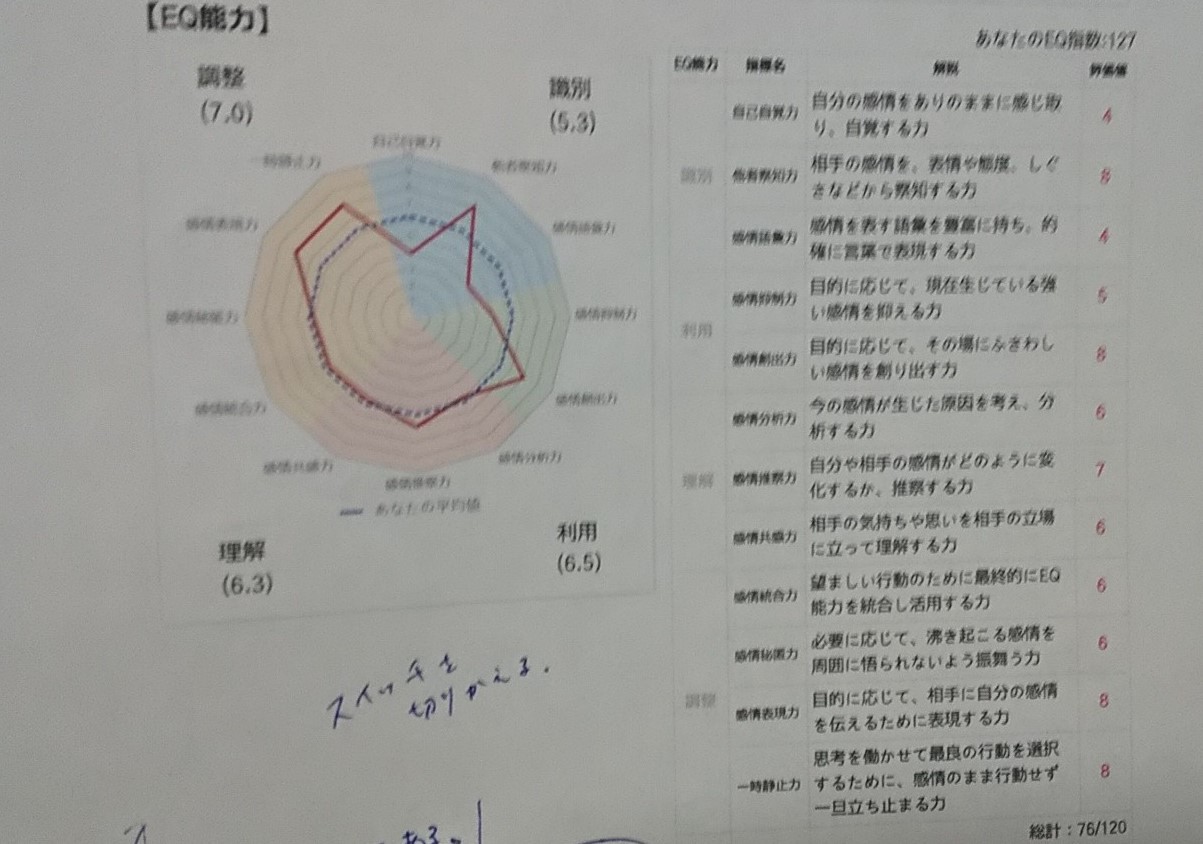 【EQ能力】
あなたのEQ指数:127
調整
(7.0)
識別
(5.3)
自己自覚力
他者察知力
感情語彙力
感情抑制力
感情創出力
感情分析力
感情推察力
感情共感力
感情統合力
感情秘匿力
感情表現力
一時静止力
あなたの平均値
理解
(6.3)
利用
(6.5)
スイッチを
切りかえる.
ある。
EQ能力 指標名 解説 評価値
識別
自己自覚力 自分の感情をありのままに感じ取
り、自覚する力 4
他者察知力 相手の感情を、表情や態度、しぐ
さなどから察知する力 8
感情語彙力 感情を表す語彙を豊富に持ち、的
確に言葉で表現する力 4
利用
感情抑制力 目的に応じて、現在生じている強
い感情を抑える力 5
感情創出力 目的に応じて、その場にふさわし
い感情を創り出す力 8
理解
感情分析力 今の感情が生じた原因を考え、分
析する力 6
感情推察力 自分や相手の感情がどのように変
化するか、推察する力 7
感情共感力 相手の気持ちや思いを相手の立場
に立って理解する力 6
調整
感情統合力 望ましい行動のために最終的にEQ
能力を統合し活用する力 6
感情秘匿力 必要に応じて、沸き起こる感情を
周囲に悟られないよう振舞う力 6
感情表現力 目的に応じて、相手に自分の感情
を伝えるために表現する力 8
一時静止力 思考を働かせて最良の行動を選択
するために、感情のまま行動せず
一旦立ち止まる力 8
総計：76/120